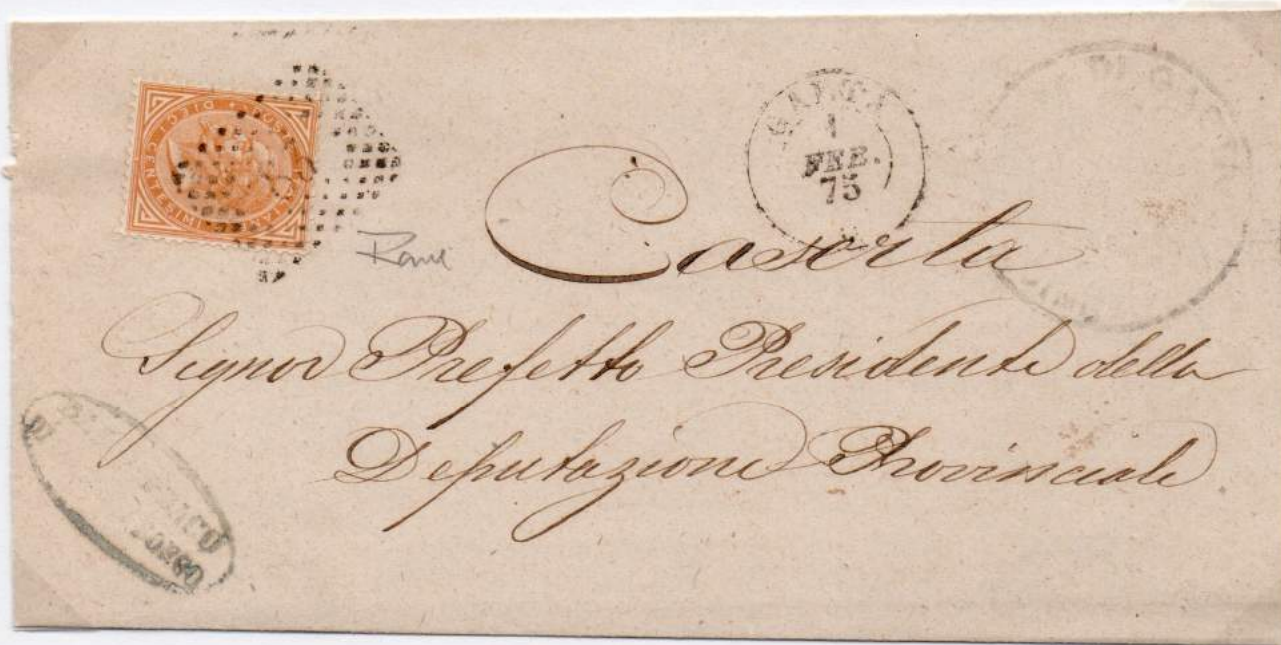 DIECI CENTESIMI
GAETA
1
FEB.
75
DI GAETA
Caserta
Signor Prefetto Presidente della
Deputazione Provinciale